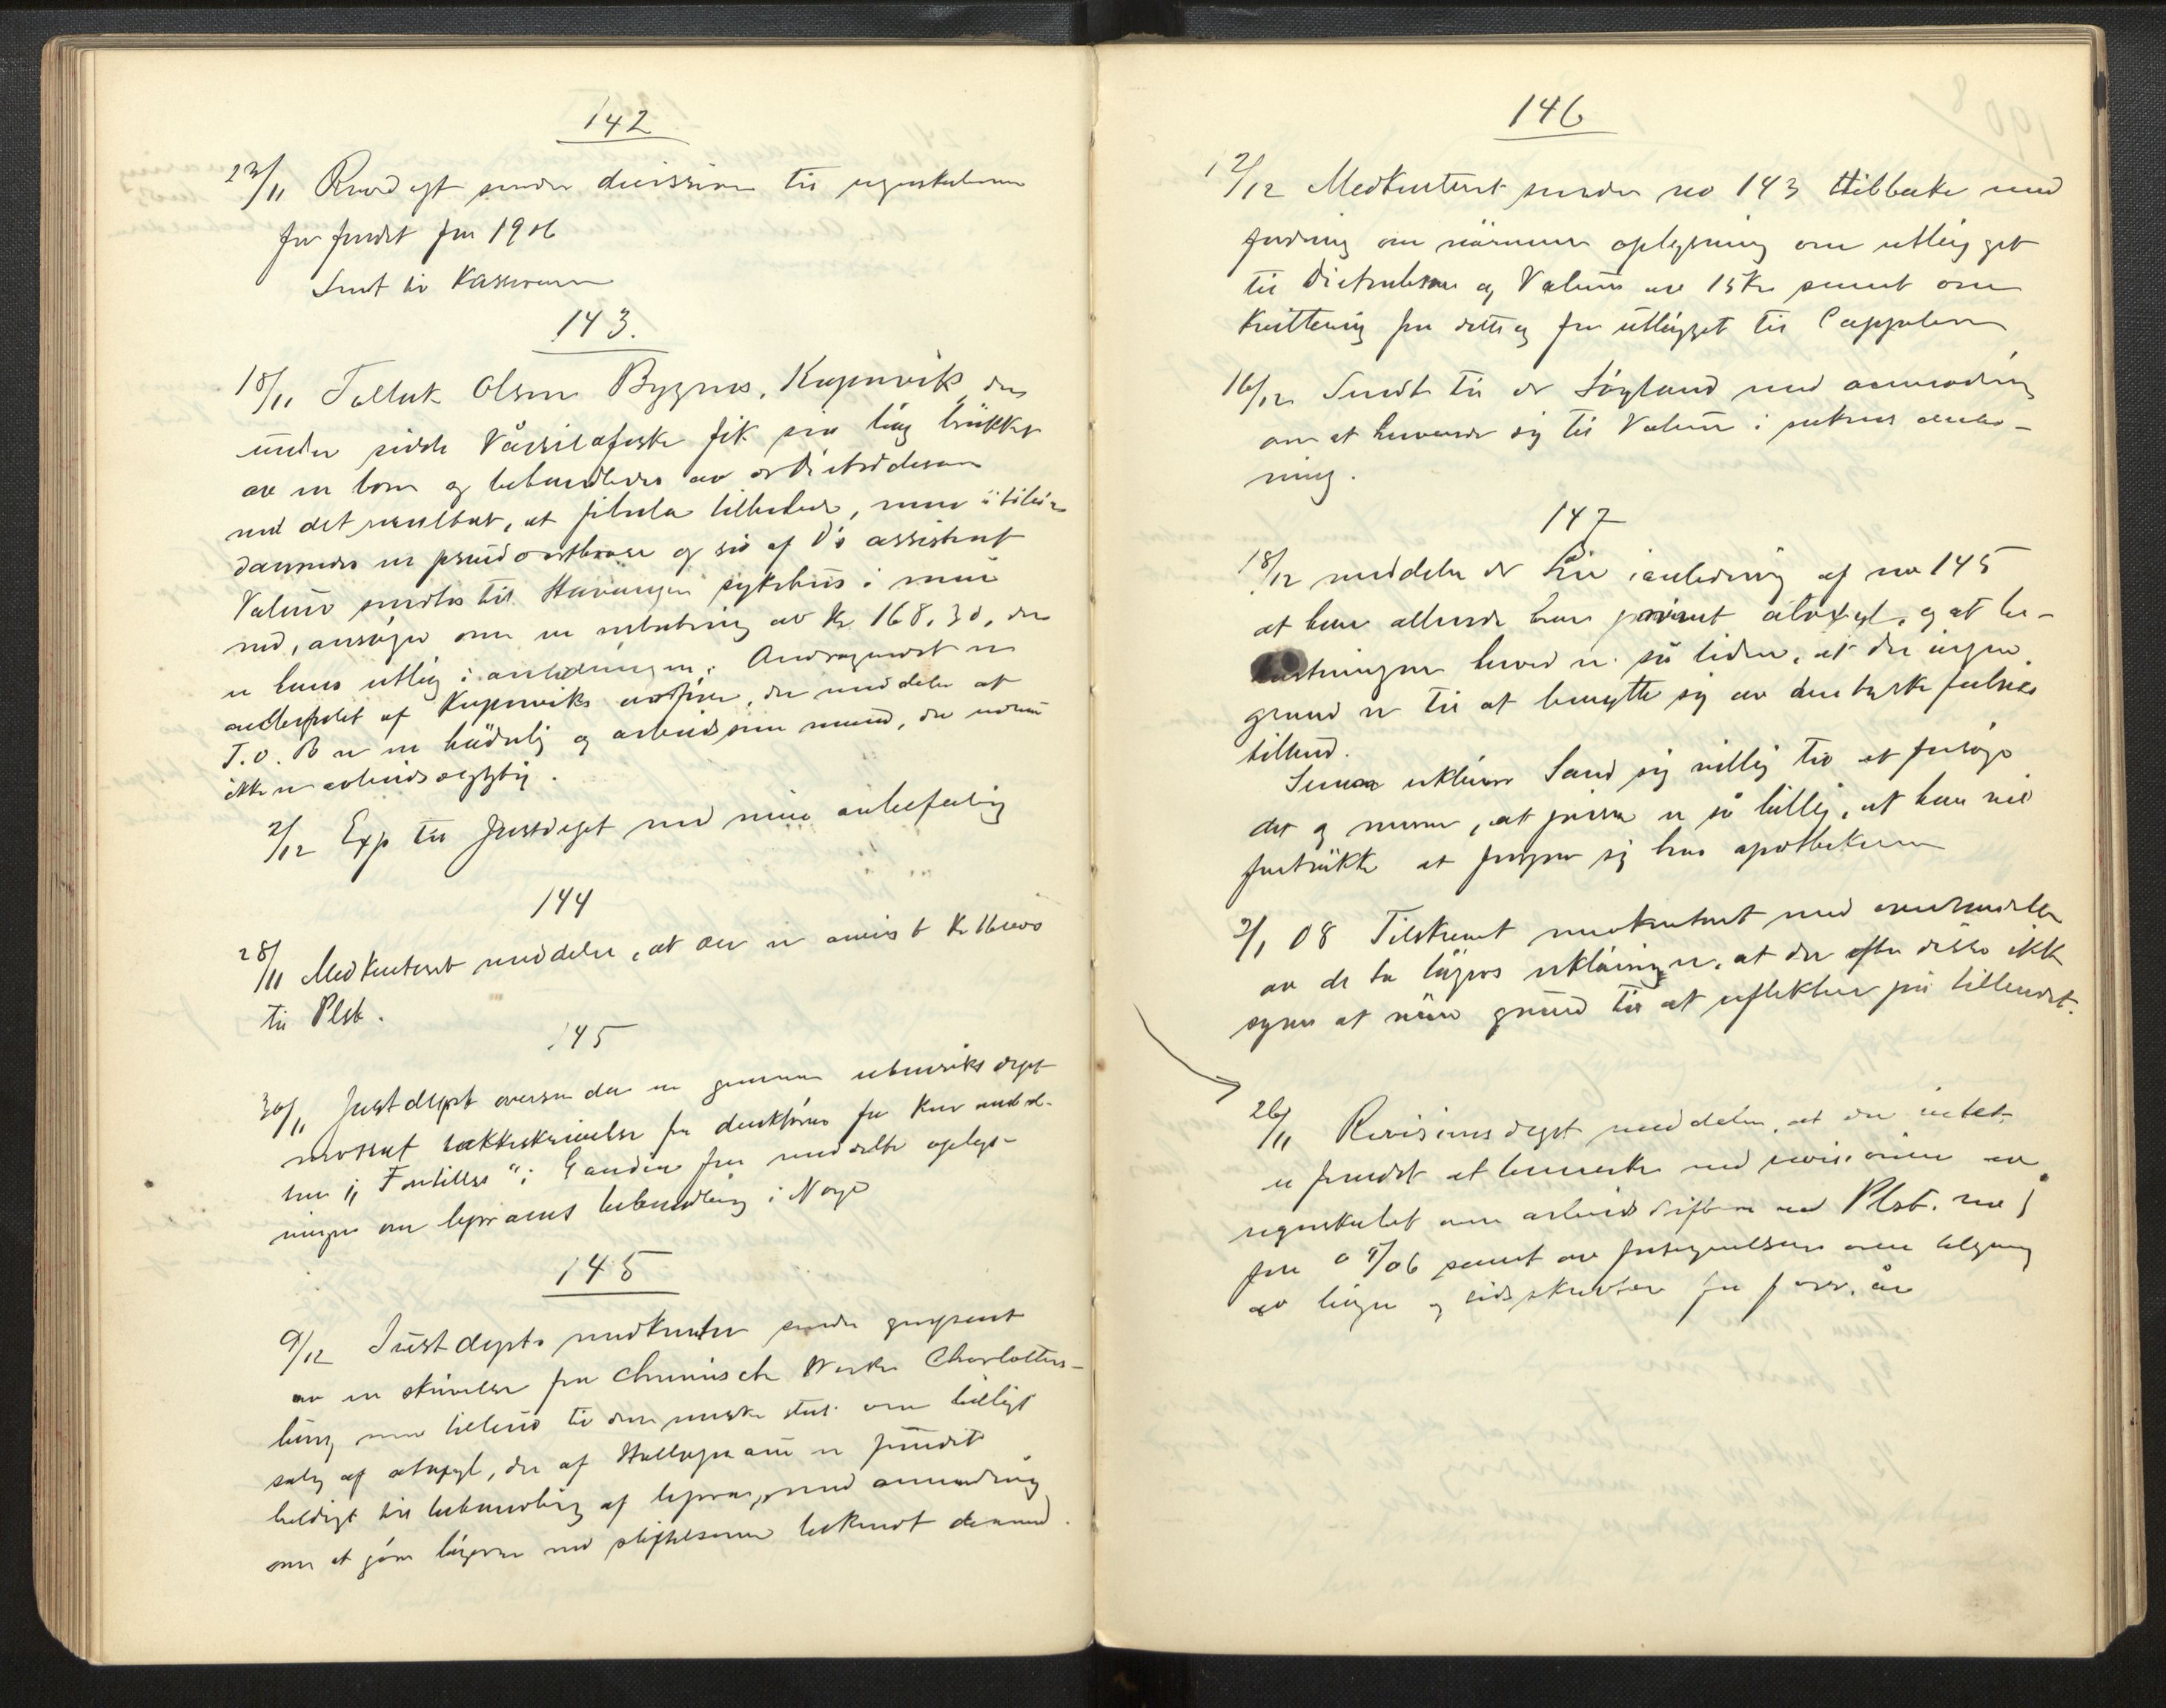 142
23/11 Revdept sender decission til regnskaberne
for fondet for 1906
Sendt til Kasserern
143.
18/11 Tollak Olsen Bygnes, Kopervik, der
under sidste Vårsildfiske fik sin låg brukket
av en bom og behandledes av dr Dietrichson
med det resultat, at fibula tilhelede, men i tibia
dannedes en pseudoarthrose og så af D's assistent
Valeur sendtes til Stavanger sykehus i min
ned, ansøger om en erstatning av Kr. 168,30, der
er hans utlæg i anledningen. Andragendet er
anbefalet af Koperviks ordfører, der meddeler at
T.O.B er en hæderlig og arbeidsom mand, der endnu
ikke er arbeidsdygtig.
2/12 Exp til Justdept med min anbefaling
144
28/11 Medkontoret meddeler, at der er anvist Kr
til Plst.
145
30/11 Justdept oversender en gjennem utenriksdept
mottat takkeskrivelse fra direktøren for
i "Fontilles" i Gandia for meddelte oplys-
ninger om lepraens behandling i Norge
145
9/12 Justdepts medkontor sender genpart
av en skrivelse fra Chemische Werke Charlotten-
burg med tilbud til den norske stat om billigt
salg af atoxyl, der af Hallopeau er fundet
heldigt til behandling af lepra, med anmodning
om at gjøre lægerne ved stiftelserne bekendt dermed.
146
12/12 Medkontoret sender no 143 tilbake med
fordring om nærmere oplysning om utlægget
til Dietrichson og Valeur av 15 Kr samt om
Kvittering for dette og for utlægget til Cappelen
16/12 Sendt til dr Høyland med anmodning
om at henvende sig til Valeur i sakens anled-
ning.
147
18/12 meddeler dr Lie i anledning af no 145
at han allerede har prøvet atoxyl, og at be-
kostningen herved er så liden, at der ingen
grund er til at benytte sig av den tyske fabriks
tilbud.
Senere erklærer Sand sig villig til at forsøge
det og mener, at prisen er så billig, at han vil
foretrække at forsyne sig hos apothekeren
3/1 08 Tilskrevet medkontoret med oversendelse
av de to lægers erklæringer, at der efter disse ikke
synes at være grund til at reflektere på tilbudet.
26/11 Revisionsdept meddeler, at der intet
er fundet at bemerke ved revisionen av
regnskabet over arbeidsdriften ved Plst. no 1
for 0 5/06 samt av fortegnelsen over tilgang
av bøger og tidsskrifter for forr. år